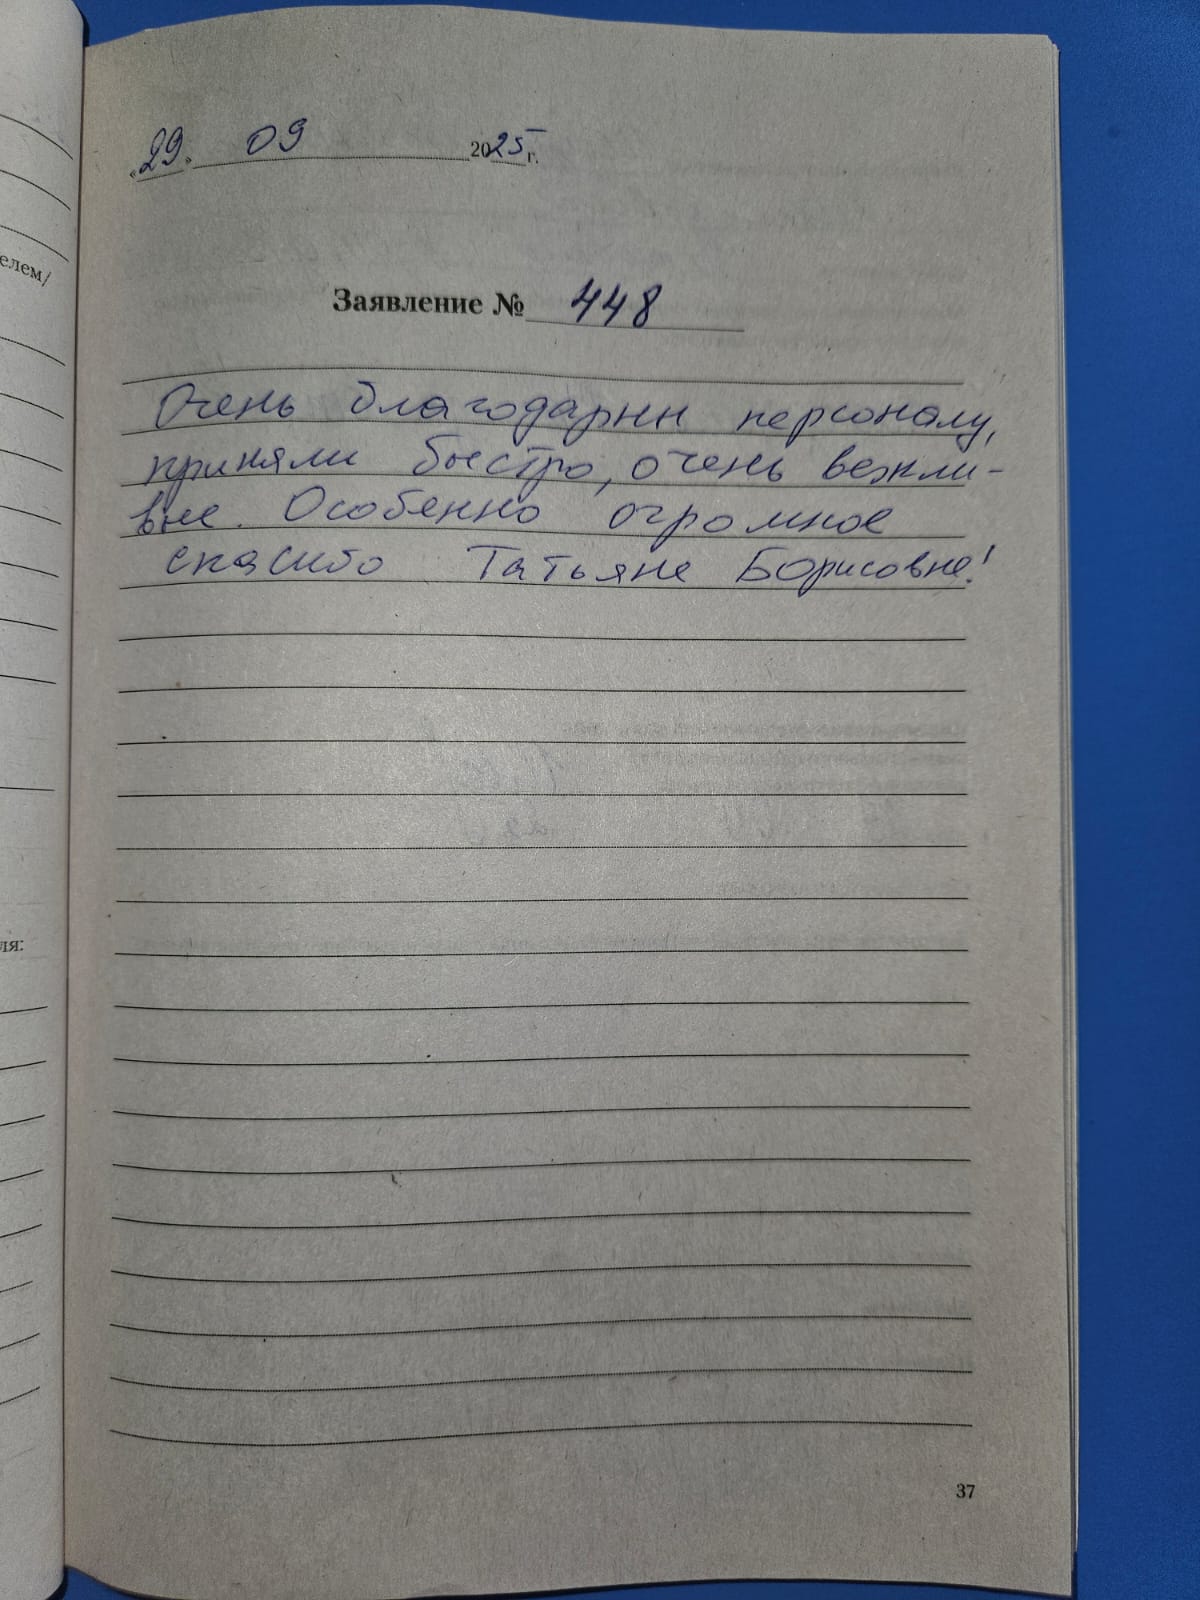 елем/
ля:
«29» 09 2025 г.
Заявление № 448
Очень благодарны персоналу,
приняли быстро, очень вежли-
вые. Особенно огромное
спасибо Татьяне Борисовне!
37